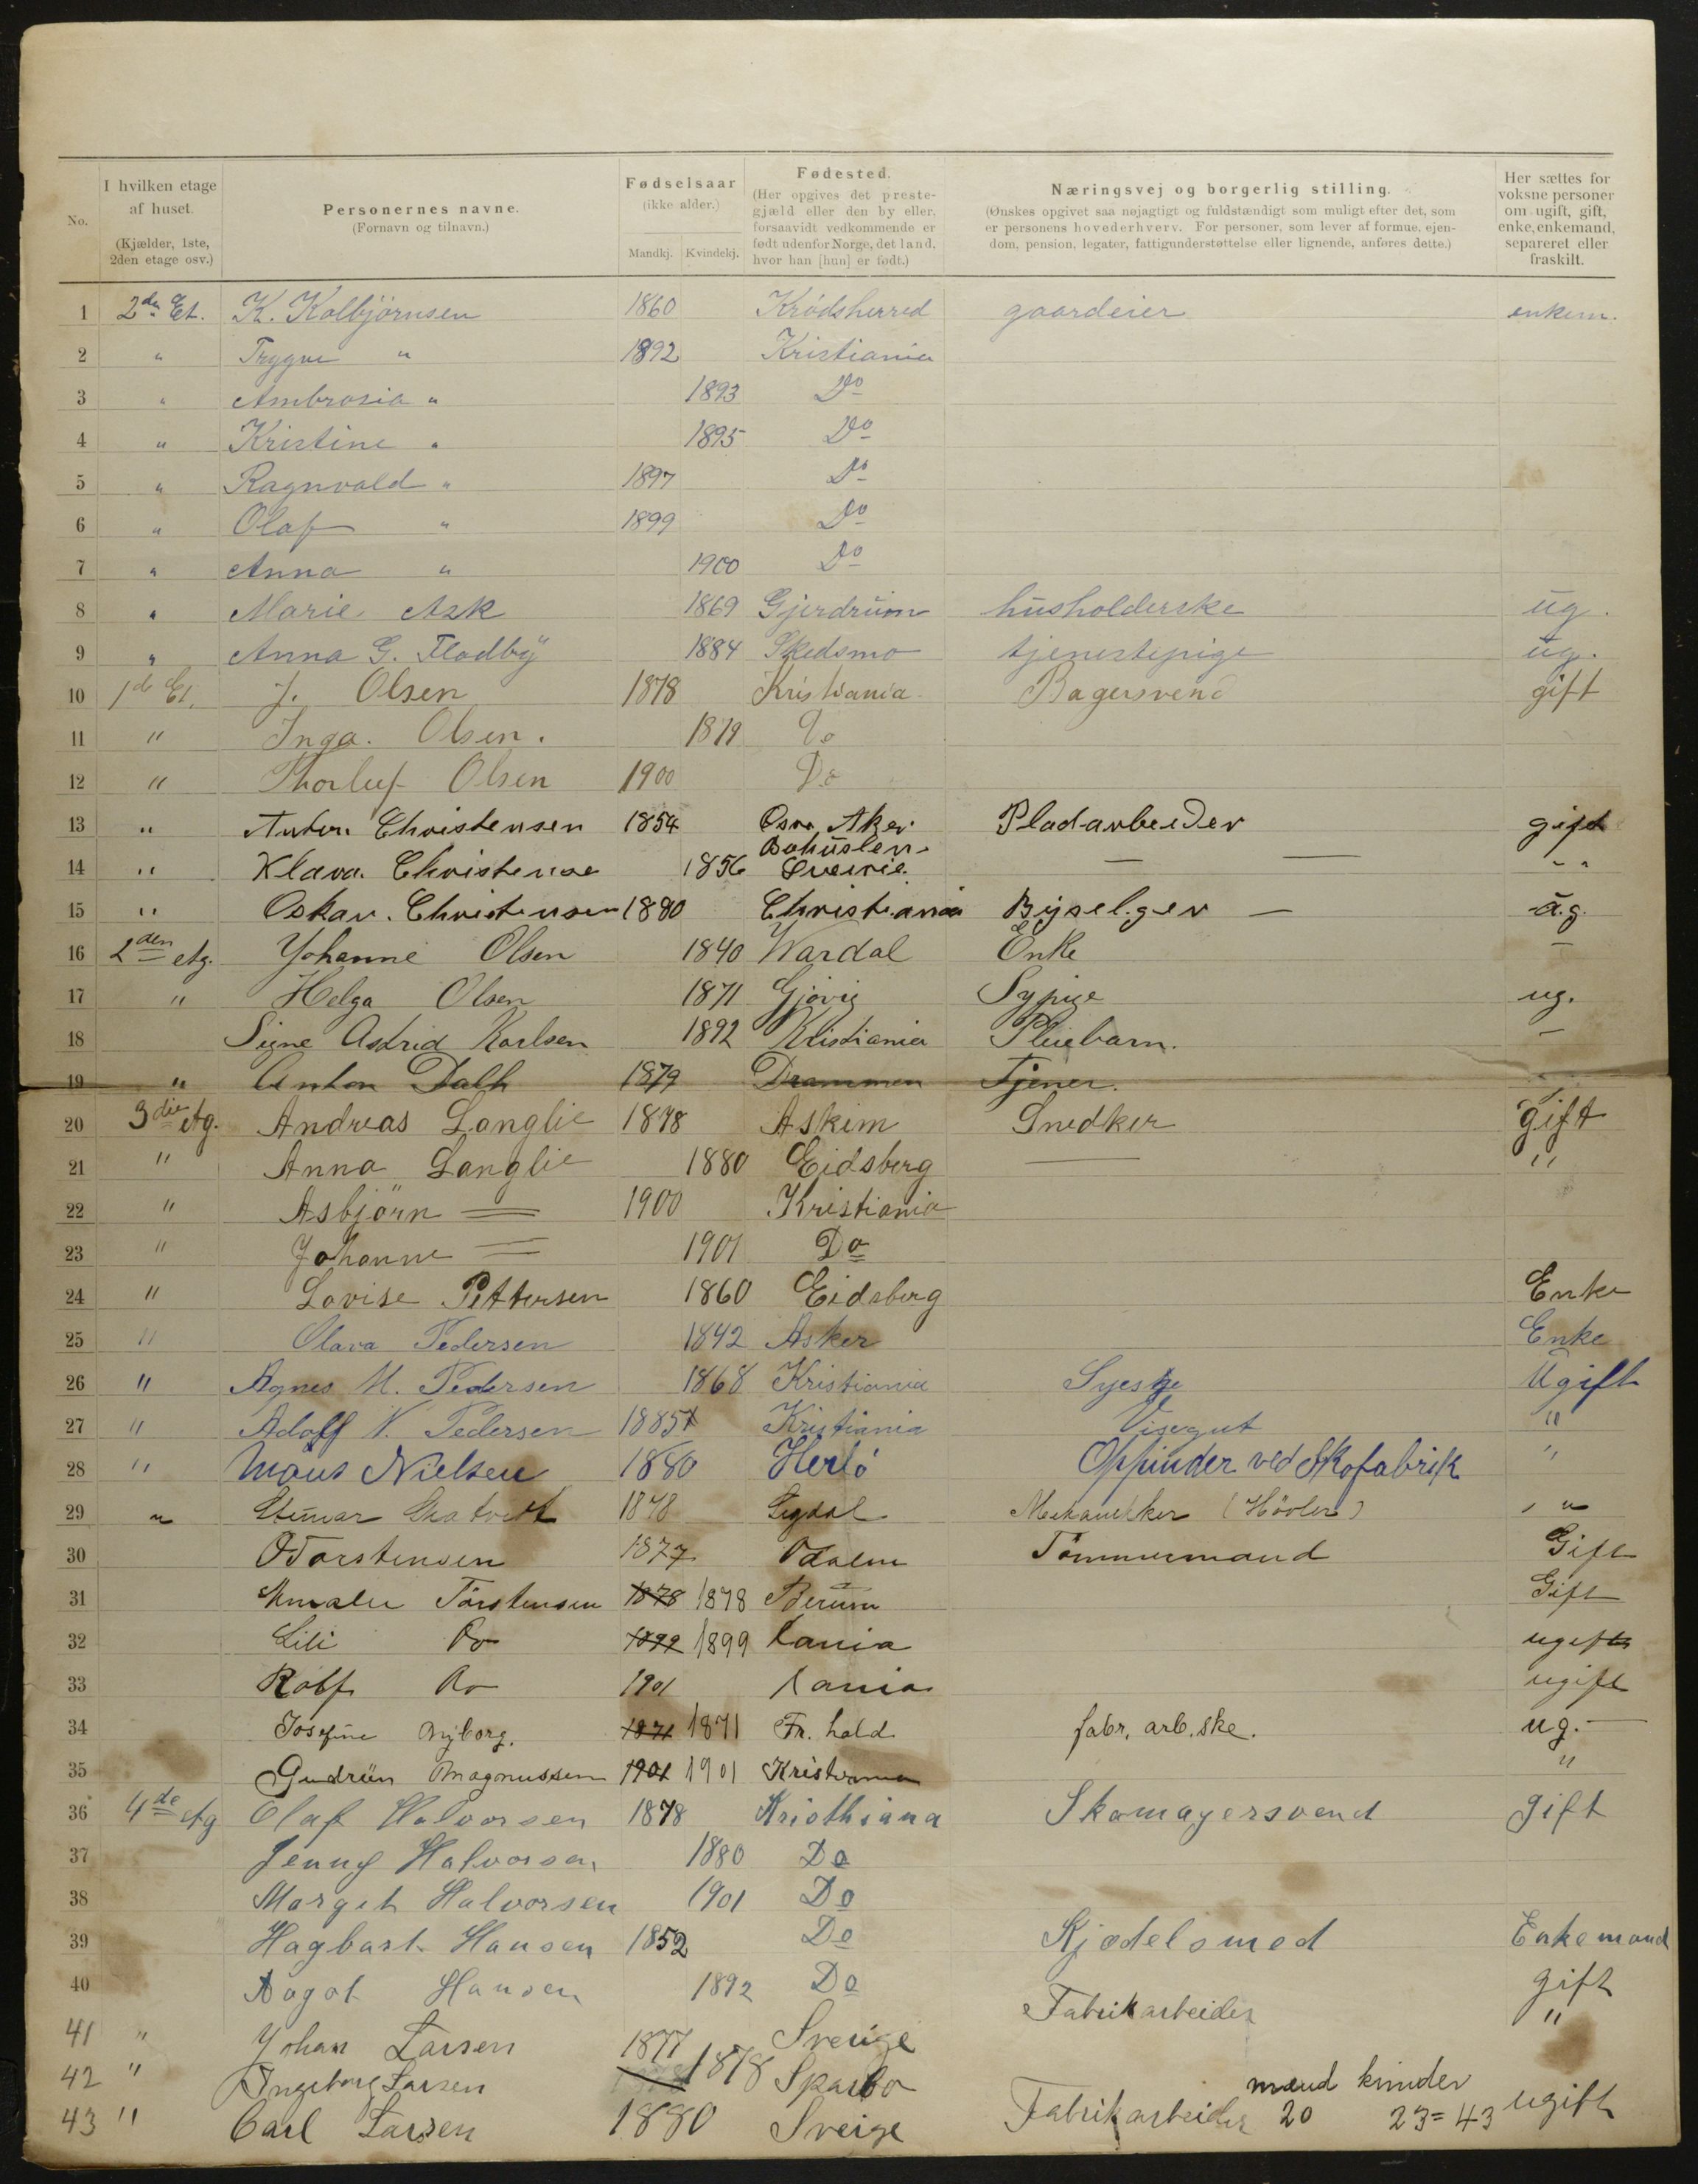 No.
I hvilken etage af huset. (Kjælder, 1ste, 2den etage osv.)
Personernes navne. (Fornavn og tilnavn.)
Fødselsaar (ikke alder.) Mandkj. Kvindekj.
Fødested. (Her opgives det prestegjæld eller den by eller, forsaavidt vedkommende er født udenfor Norge, det land, hvor han [hun] er født.)
Næringsvej og borgerlig stilling. (Ønskes opgivet saa nøjagtigt og fuldstændigt som muligt efter det, som er personens hovederhverv. For personer, som lever af formue, ejendom, pension, legater, fattigunderstøttelse eller lignende, anføres dette.)
Her sættes for voksne personer om ugift, gift, enke, enkemand, separeret eller fraskilt.
1 2den Et. K. Kolbjörnsen 1860 Krødsherred gaardeier enkem.
2 " Trygve " 1892 Kristiania
3 " Ambrosia " 1893 Do
4 " Kristine " 1895 Do
5 " Ragnvald " 1897 Do
6 " Olaf " 1899 Do
7 " Anna " 1900 Do
8 " Marie Ask 1869 Gjerdrum husholderske ug.
9 " Anna G. Flodby 1884 Skedsmo tjenestepige ug.
10 1de Et. J. Olsen 1878 Kristiania Bagersvend gift
11 " Inga. Olsen. 1879 Do
12 " Thorluf Olsen 1900 Do
13 " Anton Christensen 1854 Aker Pladarbeider gift
14 " Klara. Christense 1856 Bohuslen Sverrie — — "
15 " Oskar. Christensen 1880 Christiania — ug.
16 2den etg. Johanne Olsen 1840 Vardal Enke —
17 " Helga Olsen 1871 Gjøvig Sypige ug.
18 Signe Astrid Karlsen 1892 Kristiania Pleiebarn. —
19 " Anton Dalh 1879 Drammen Tjener.
20 3die etg. Andreas Langlie 1878 Askim Snedker gift
21 " Anna Langlie 1880 Eidsberg — "
22 " Asbjörn = 1900 Kristiania
23 " Johanne = 1901 Do
24 " Lovise Pettersen 1860 Eidsberg Enke
25 " Olava Pedersen 1842 Asker Enke
26 " Agnes M. Pedersen 1868 Kristiania Syeske Ugift
27 " Adolf V. Pedersen 1885 Kristiania Visegut "
28 " Maus Nielsen 1880 Herlö Oppinder ved Skofabrik "
29 " 1878 Sigdal Mekanikker (Hövler) "
30 O Torstensen 1877 Odalen Tömmermand Gift
31 Torstensen 1878 1878 Berum Gift
32 Lili Do 1899 1899 Kania ugift
33 Rolf Do 1901 Kania ugift
34 Josefine Nyborg. 1871 1871 Fr. hald fabr. arb. ske. ug. —
35 Gudrun Magnussen 1901 1901 Kristiania "
36 4de etg Olaf Halvorsen 1878 Kristhiana Skomagersvend gift
37 Jenny Halvorsen 1880 Do
38 Margit Halvorsen 1901 Do
39 Hagbart Hansen 1852 Do Kjædelsmed Enkemand
40 Aagot Hansen 1892 Do gift
41 " Johan Larsen 1877 Sverige Fabrikarbeider "
42 " Ingeborg Larsen 1878 Sparbo
mænd kvinder
43 " Carl Larsen 1880 Sverige Fabrikarbeider 20 23 = 43 ugift